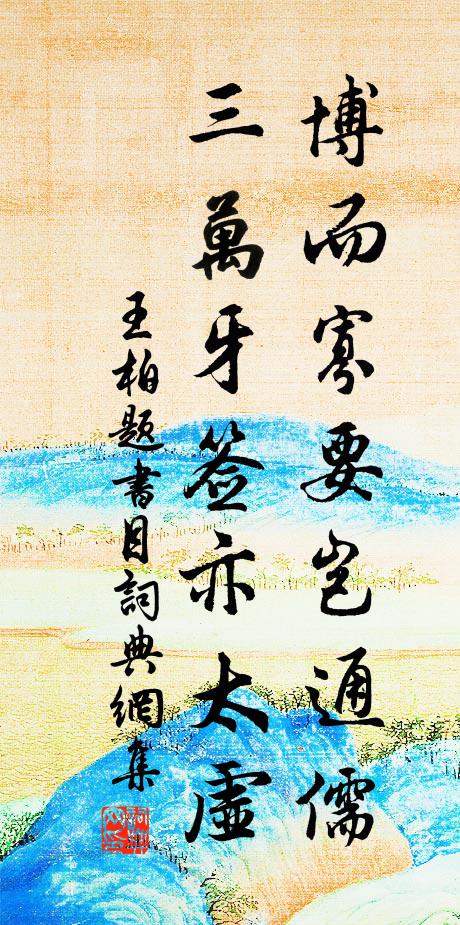 博而寡要岂通儒
三萬牙签亦太虛
王柏題書目詞典網集